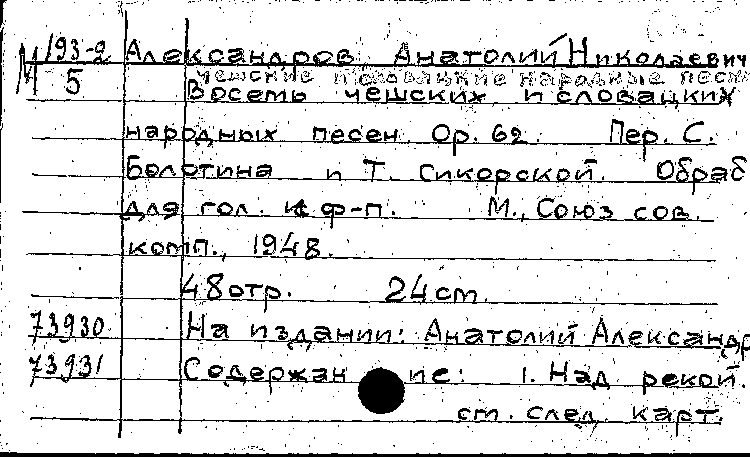 М 193-2 Александров, Анатолий Николаевич
5 чешские и словацкие народные песни
Восемь чешских и словацких
народных песен. Ор. 62. Пер. С.
Болотина и Т. Сикорской. Обраб
для гол. и ф-п. М., Союз сов.
комп., 1948.
48 стр. 24 см
73930 На издании: Анатолий Александр
73931 Содержание: 1. Над рекой.
см. след. карт.